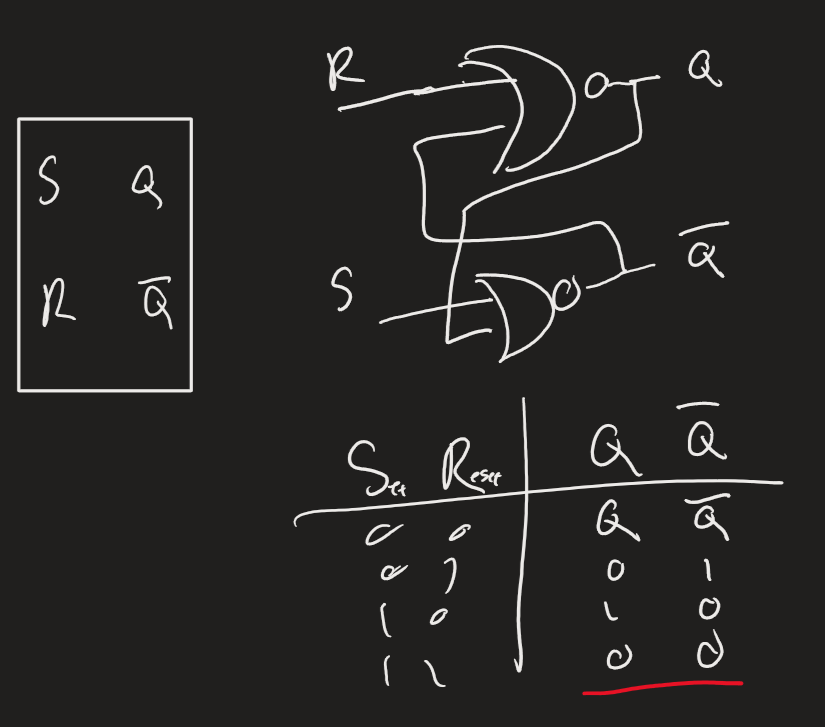 S Q
R Q̅
R Q
S Q̅
Set Reset Q Q̅
0 0 Q Q̅
0 1 0 1
1 0 1 0
1 1 0 0